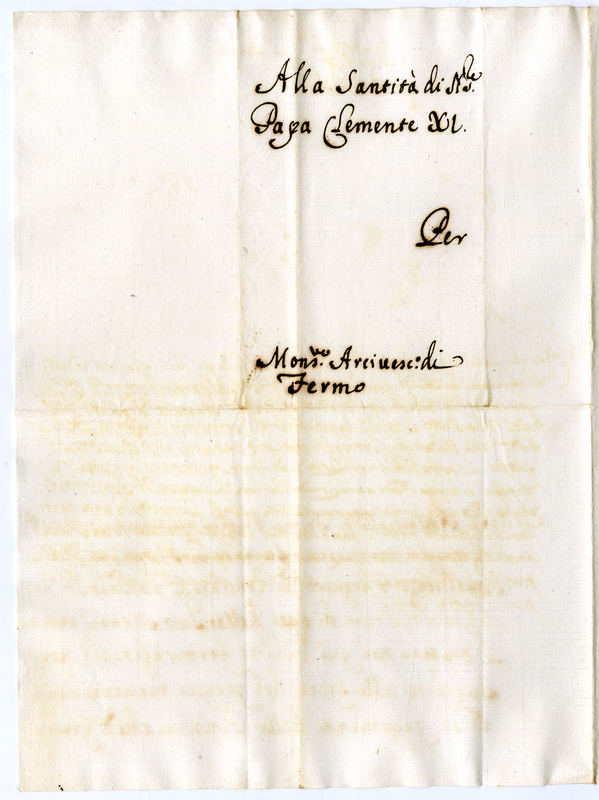 Alla Santità di N.S.re
Papa Clemente XI.
Per
Mons.re Arciuesc.o di
Fermo